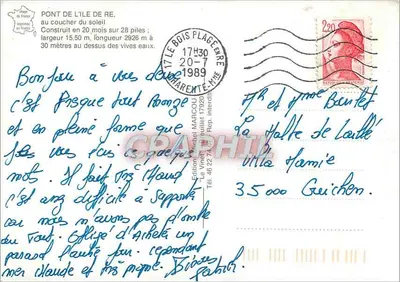 PONT DE L'ILE DE RE,
au coucher du soleil
Construit en 20 mois sur 28 piles ;
largeur 15,50 m, longueur 2926 m à
30 mètres au dessus des vives eaux.
17 LE BOIS PLAGE EN RE
17H30
20-7
1989
CHARENTE-MME
2,20
Bonjour à vous deux
c'est presque tout bronzé
et en pleine forme que
je vous fais quelques
mots. Il fait très chaud
c'est assez difficile à supporter
car nous n'avons pas d'ombre
du tout. Obligé d'acheter un
parasol l'autre jour. Cependant
mer chaude et très
Bisous
Mr et Mme
La Halte de Laillé
Villa Mamie
35000 Guichen.
Editions
MARCOU
17920
Tél. 46 22
Rep. interd.
GRAPHIL